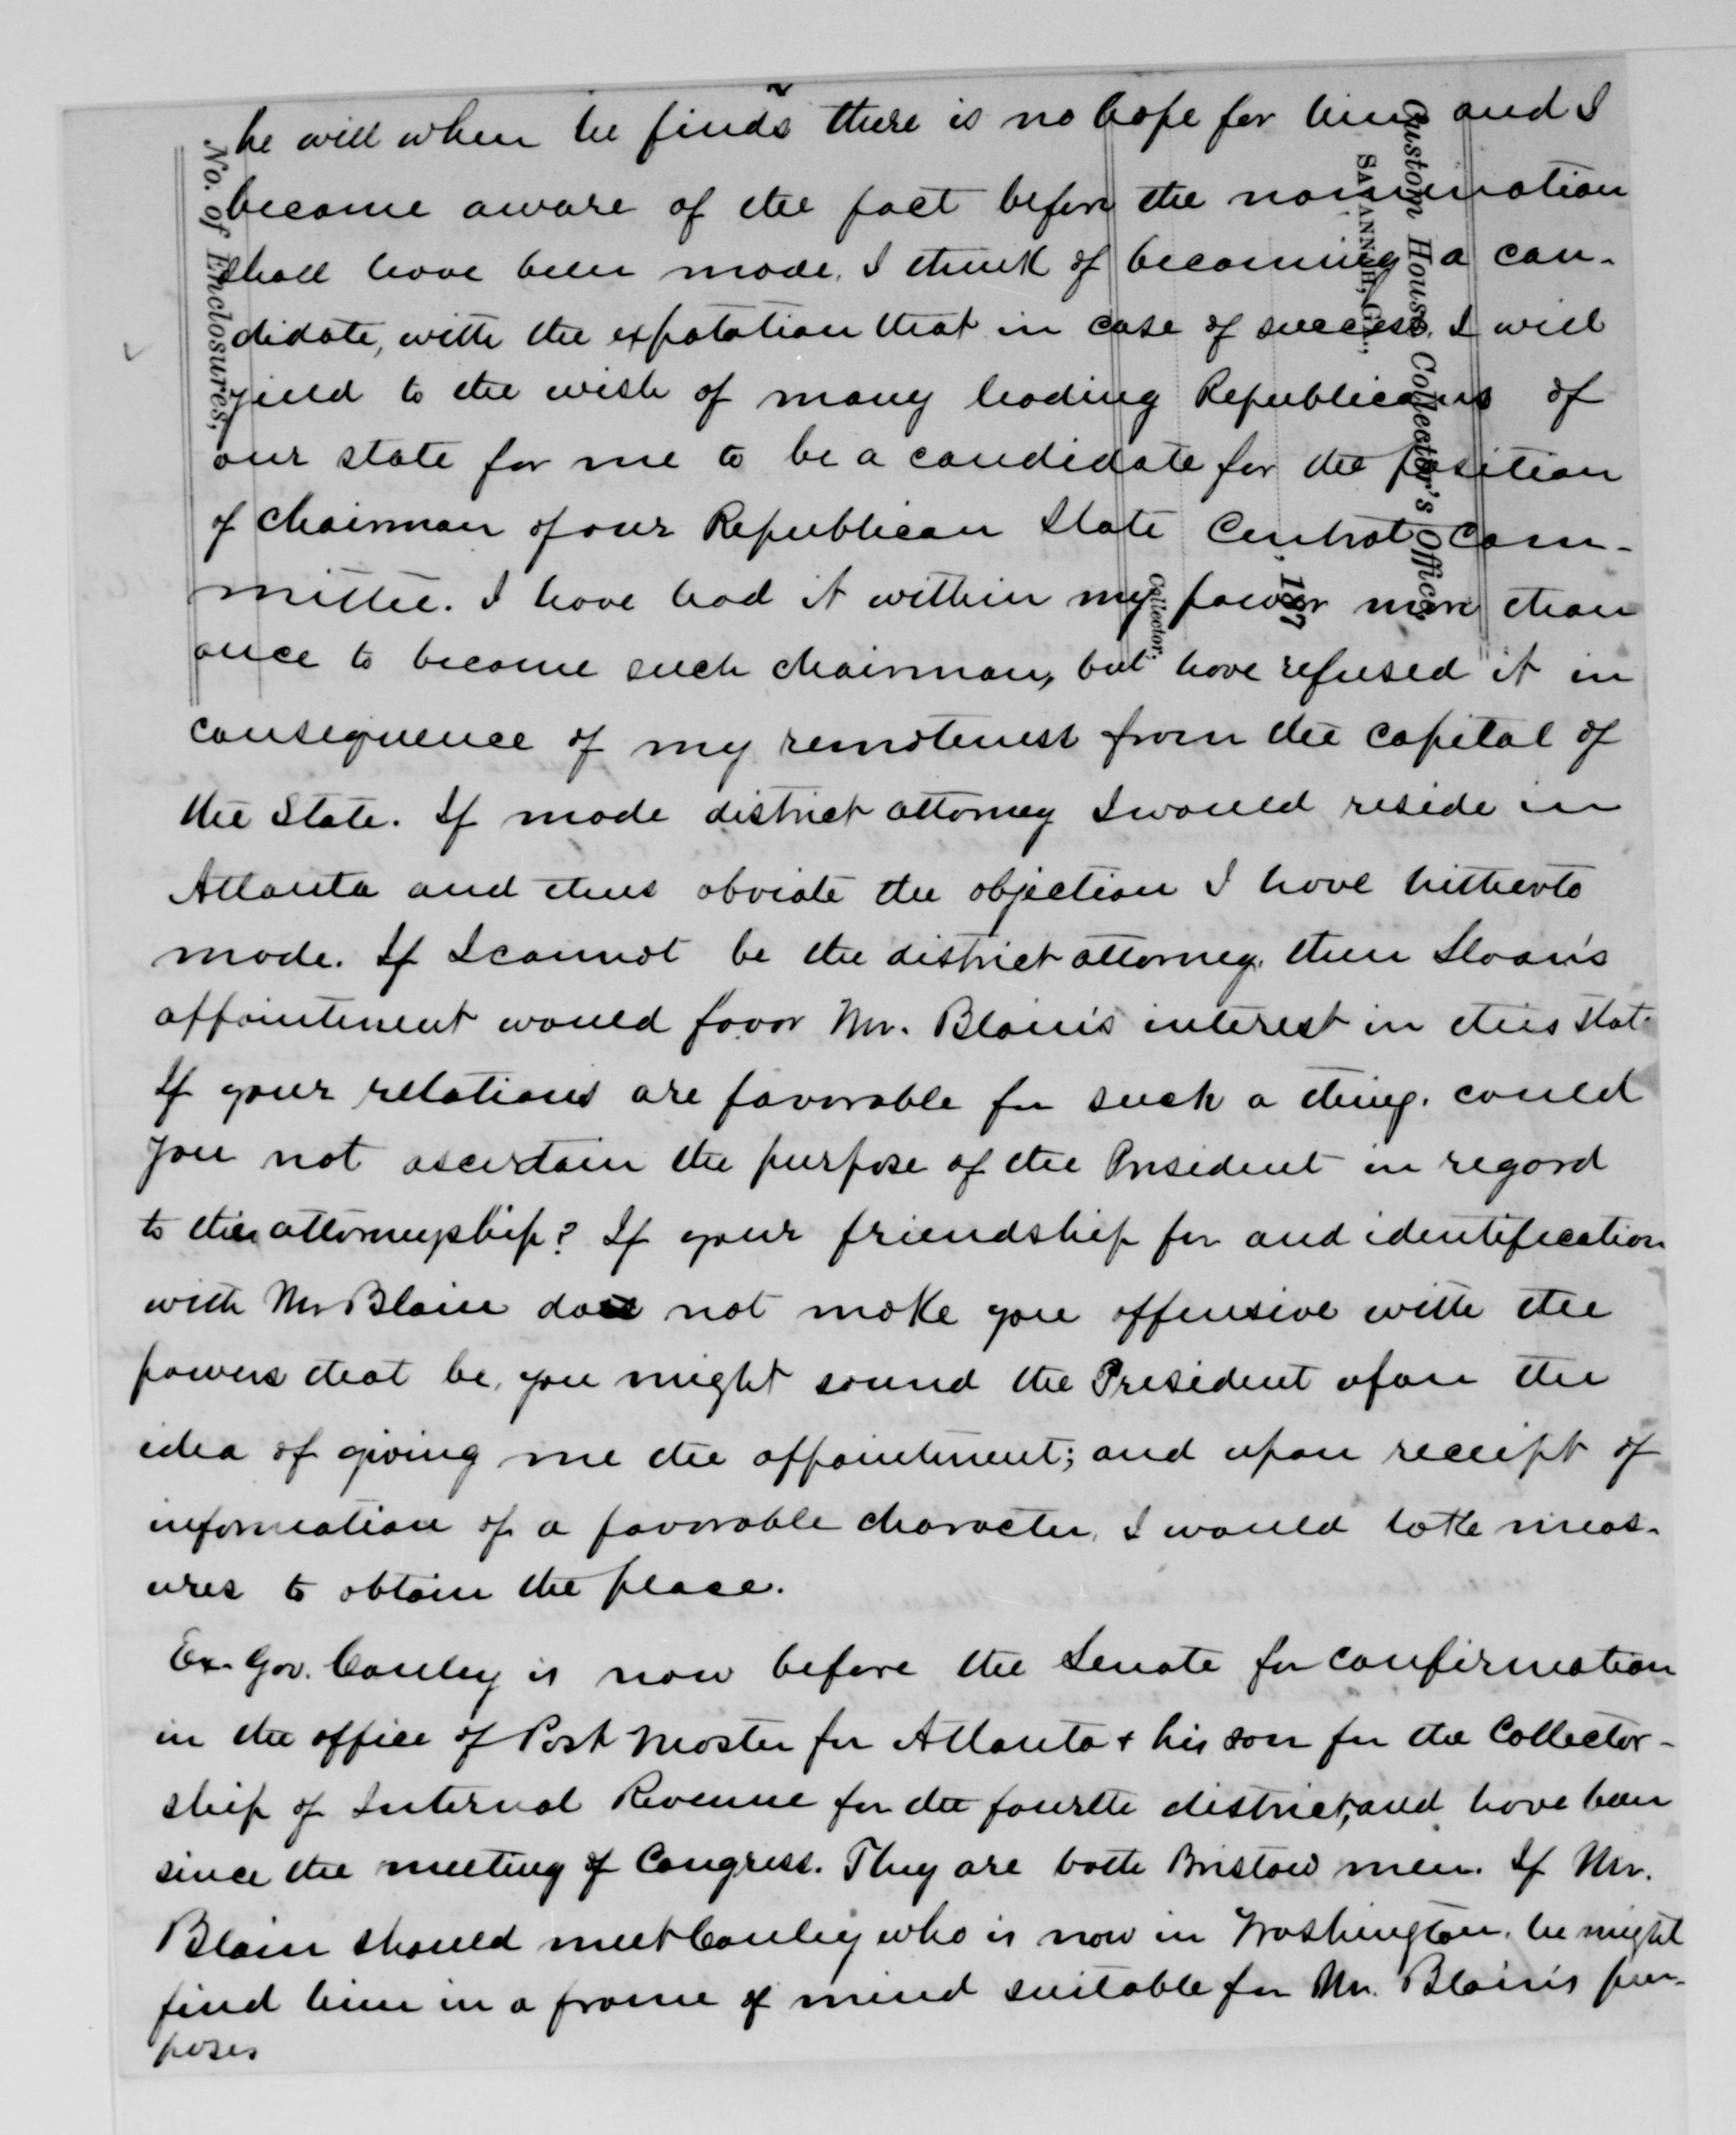 he will when he finds there is no hope for him and I
become aware of the fact before the nomination
shall have been made, I think of becoming a can-
didate, with the expotation that in case of success, I will
yield to the wish of many leading Republicans of
our state for me to be a candidate for the position
of Chairman of our Republican State Central Com-
mittee. I have had it within my power more than
once to become such chairman, but have refused it in
consequence of my remoteness from the capital of
the State. If made district attorney I would reside in
Atlanta and thus obviate the objection I have hitherto
made. If I cannot be the district attorney, then Sloan's
appointment would favor Mr. Blain's interest in this State
If your relations are favorable for such a thing, could
you not ascertain the purpose of the President in regard
to this attorneyship? If your friendship for and identification
with Mr Blain does not make you offensive with the
powers that be, you might sound the President upon the
idea of giving me the appointment; and upon receipt of
information of a favorable character, I would take meas-
ures to obtain the place.
Ex. Gov. Conley is now before the Senate for confirmation
in the office of Post Master for Atlanta & his son for the Collector-
ship of Internal Revenue for the fourth district, and have been
since the meeting of Congress. They are both Bristow men. If Mr.
Blain should meet Conley who is now in Washington, he might
find him in a frame of mind suitable for Mr. Blain's pur-
poses
No. of Enclosures,
Custom House, Collector's Office,
SAVANNAH, GA.,
187
Collector.